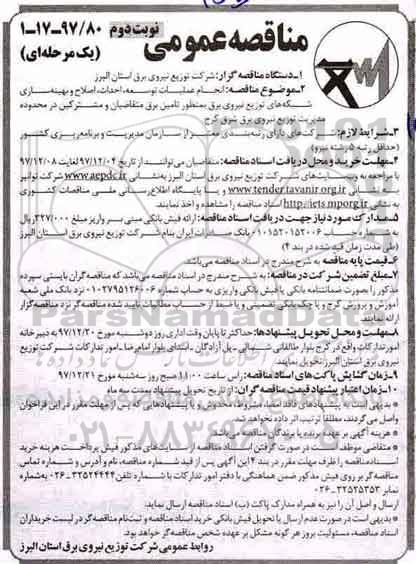 مناقصه عمومی
نوبت دوم
۱-۱۷-۹۷/۸۰
(یک مرحله‌ای)
۱-دستگاه مناقصه گزار: شرکت توزیع نیروی برق استان البرز
۲-موضوع مناقصه: انجام عملیات توسعه، احداث، اصلاح و بهینه‌سازی
شبکه‌های توزیع نیروی برق بمنظور تامین برق متقاضیان و مشترکین در محدوده
مدیریت توزیع نیروی برق شرق کرج
۳-شرایط لازم: شرکت‌های دارای رتبه‌بندی معتبر از سازمان مدیریت و برنامه‌ریزی کشور
(حداقل رتبه ۵ رشته نیرو)
۴-مهلت خرید و محل دریافت اسناد مناقصه: متقاضیان می‌توانند از تاریخ ۹۷/۱۲/۰۴ لغایت ۹۷/۱۲/۰۸
با مراجعه به وبسایت‌های شرکت توزیع نیروی برق استان البرز به‌نشانی www.aepdc.ir شرکت توانیر
به نشانی www.tender.tavanir.org.ir و یا پایگاه اطلاع‌رسانی ملی مناقصات کشور
به نشانی http://iets.mporg.ir اسناد مناقصه را مشاهده و اخذ نمایند.
۵-مدارک مورد نیاز جهت دریافت اسناد مناقصه: ارائه فیش بانکی مبنی بر واریز مبلغ ۳۲۷/۰۰۰ ریال
به شماره حساب ۰۱۰۱۵۲۰۱۵۲۰۰۶ بانک صادرات ایران بنام شرکت توزیع نیروی برق استان البرز
(طی مدت زمان قید شده در بند ۴)
۶-قیمت پایه مناقصه به شرح مندرج در اسناد مناقصه می‌باشد.
۷-مبلغ تضمین شرکت در مناقصه: به شرح مندرج در اسناد مناقصه می‌باشد که مناقصه‌گران بایستی سپرده
مذکور را بصورت ضمانتنامه بانکی یا فیش بانکی واریزی به حساب شماره ۰۱۰۲۷۹۵۱۲۶۰۰۶ نزد بانک ملی شعبه
آموزش و پرورش کرج و یا چک بانکی تضمینی و یا ضبط از حساب مطالبات تایید شده مناقصه‌گر نزد مناقصه‌گزار
ارائه نمایند.
۸-مهلت و محل تحویل پیشنهادها: حداکثر تا پایان وقت اداری روز دوشنبه مورخ ۹۷/۱۲/۲۰ به دبیرخانه
امور تدارکات واقع در کرج بلوار طالقانی شمالی-پل آزادگان-ابتدای بلوار امام رضا-امور تدارکات شرکت توزیع
نیروی برق استان البرز تحویل نمایند.
۹-زمان گشایش پاکت‌های اسناد مناقصه: راس ساعت ۱۱:۰۰ صبح روز سه‌شنبه مورخ ۹۷/۱۲/۲۱
۱۰-زمان اعتبار پیشنهاد قیمت مناقصه گران: از تاریخ تحویل پیشنهاد بمدت سه ماه
* بدیهی است به پیشنهادهای فاقد امضاء، مشروط، مخدوش و یا پیشنهادهایی که پس از مهلت مقرر در این فراخوان
واصل می‌گردند، مطلقا ترتیب اثر داده نخواهد شد.
* هزینه آگهی بر عهده برنده یا برندگان مناقصه می‌باشد
* متقاضی موظف است در صورت گرفتن اسناد مناقصه از سایت‌های مذکور فیش پرداخت هزینه خرید
اسناد مناقصه را ظرف مهلت مقرر در بند ۴ این آگهی پس از قید شماره مناقصه، نام و آدرس و شماره تماس
مناقصه‌گر بر روی فیش مذکور ضمن هماهنگی با دفتر امور تدارکات با شماره تلفن ۳۲۵۲۴۴۴۴-۰۲۶ به شماره
نمابر ۳۲۵۲۵۳۵۳-۰۲۶
ارسال و اصل آن را نیز به همراه مدارک پاکت (ب) اسناد مناقصه ارسال نماید.
* بدیهی است در صورت عدم ارسال یا تحویل فیش بانکی خرید اسناد مناقصه و ثبت نام مناقصه‌گر در لیست خریداران
اسناد مناقصه، مسئولیت بروز هر گونه مشکل بر عهده شخص مناقصه‌گر خواهد بود.
روابط عمومی شرکت توزیع نیروی برق استان البرز
ParsNamadData
۰۲۱-۸۸۳۴۹۶